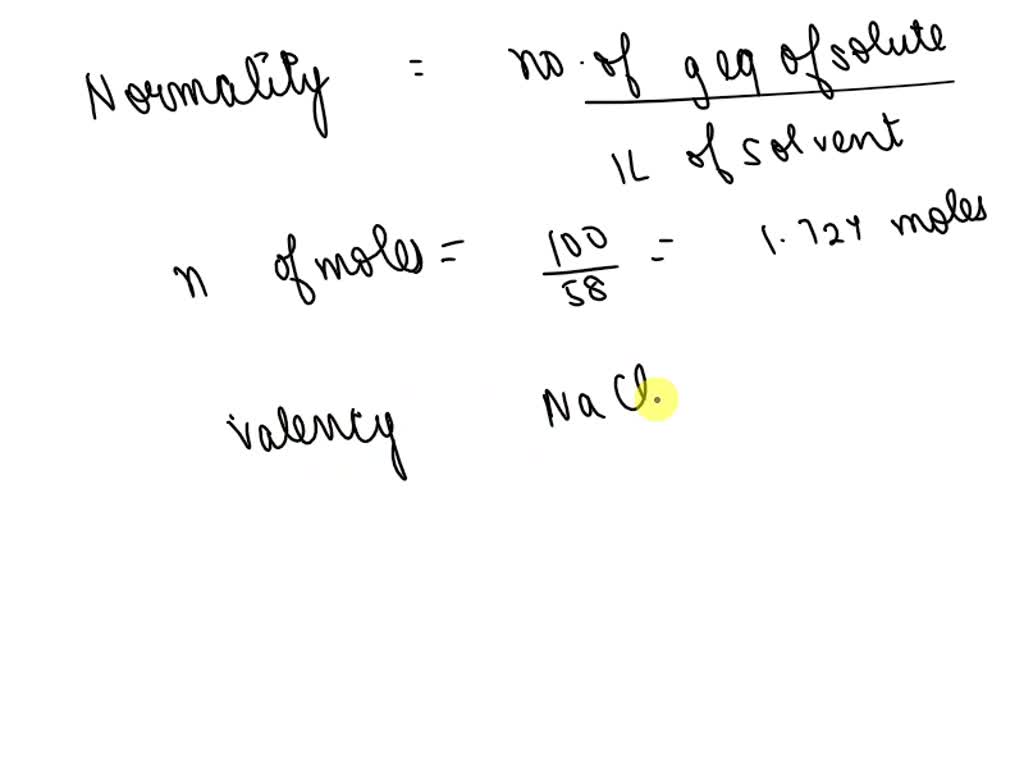 Normality = no. of g eq of solute / 1L of solvent
n of moles = 100/58 = 1.724 moles
valency NaCl